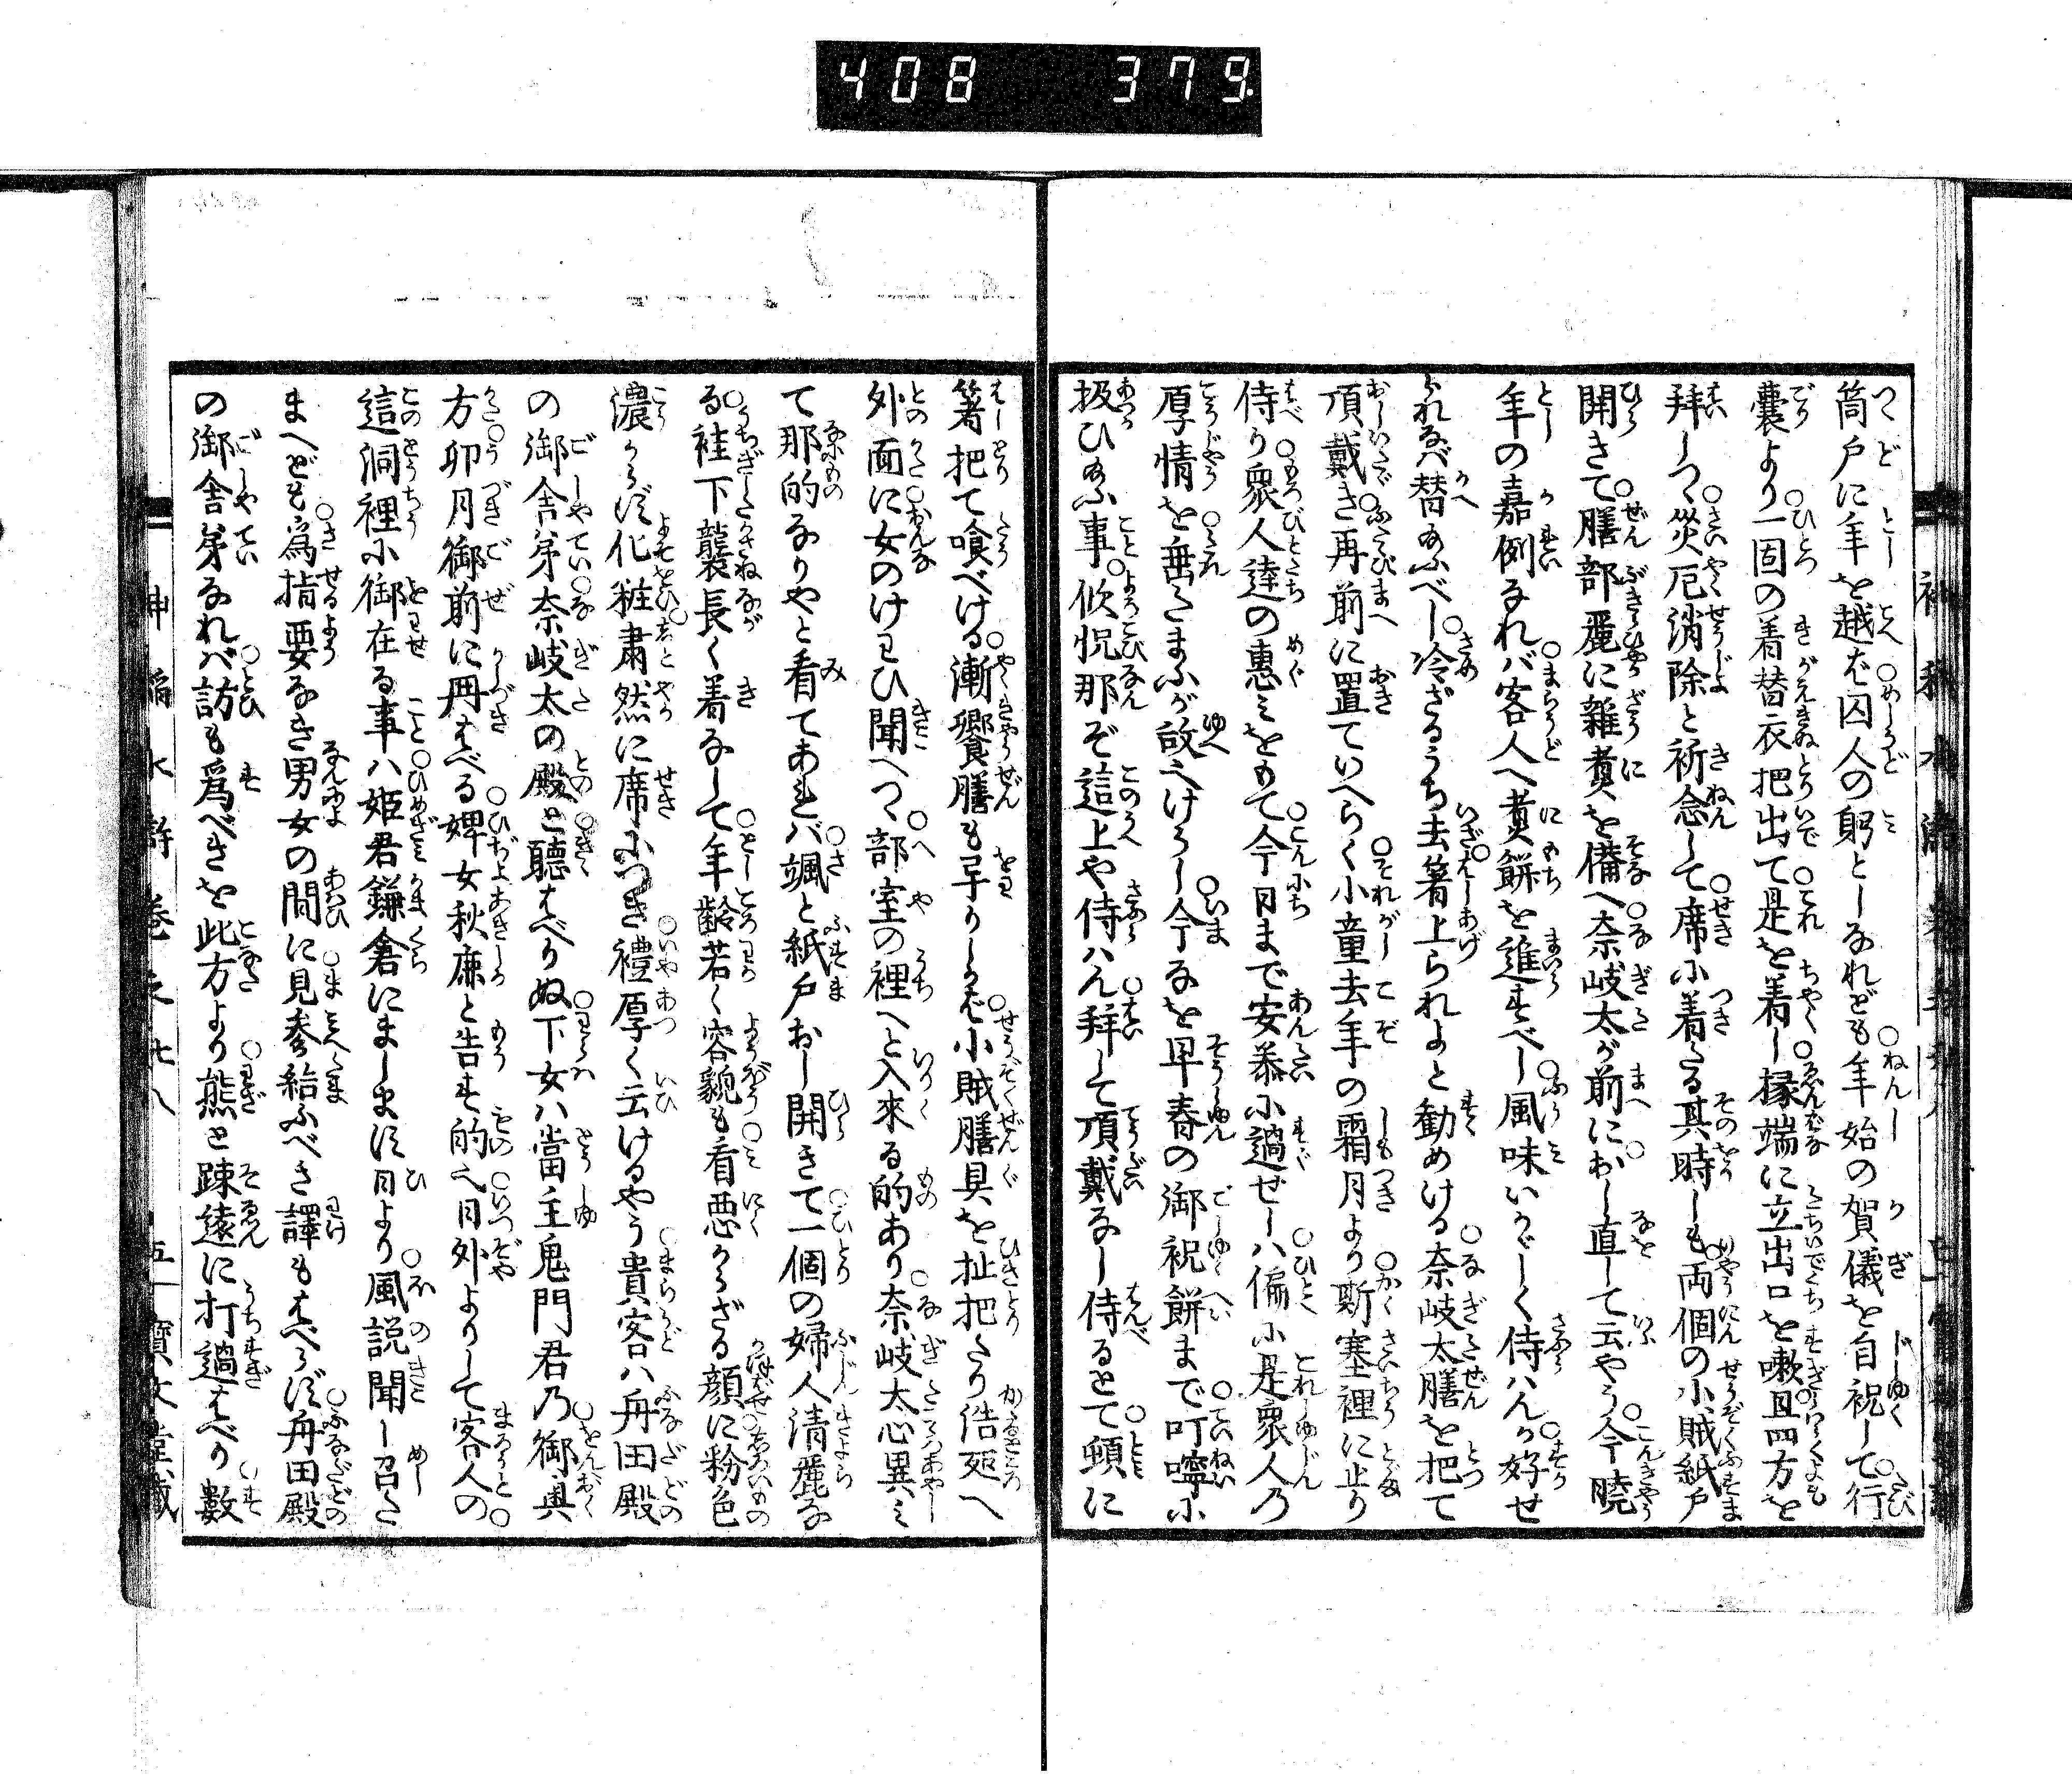 408 379
筒戸に年を越せバ囚人の躬としなれども年始の賀儀を自祝して行
嚢より一個の着替衣把出て是を着し掾端に立出口を嗽且四方を
拜しつゝ災厄消除と祈念して席に着たる其時しも両個の小賊紙戸
開きて膳部麗に雑煮を備へ奈岐太が前におし直して云やう今暁
年の嘉例なれバ客人へ煮餅を進すべし風味いかゞしく侍ハんが好せ
られなバ替給ふべし冷ざるうち去箸上られよと勧めける奈岐太膳を把て
頂戴き再前に置ていへらく小童去年の霜月より斯塞裡に止り
侍り衆人達の恵ミをもて今日まで安泰に過せしハ偏に是衆人乃
厚情を垂たまふが故へけらし今なを早春の御祝餅まで叮嚀に
扱ひ給ふ事欣悦那ぞ這上や侍ハん拜して頂戴なし侍るとて頓に
箸把て喰べける漸饗膳も早りしかバ小賊膳具を扯把たり徣処へ
外面に女のけわひ聞へつゝ部室の裡へと入來る的あり奈岐太心異ミ
て那的なりやと看てあれバ颯と紙戸おし開きて一個の婦人清麗な
る袿下襲長く着なして年齢若く容貌も看悪からざる顔に粉色
濃からず化粧粛然に席につき禮厚く云けるやう貴客ハ舟田殿
の御舎弟奈岐太の殿と聴はべりぬ下女ハ當主鬼門君乃御奥
方卯月御前に冊はべる婢女秋廉と告す的之日外よりして客人の
這洞裡に御在る事ハ姫君鎌倉にまします日より風説聞し召た
まへども為指要なき男女の間に見参給ふべき譯もはべらず舟田殿
の御舎弟なれバ訪も為べきを此方より態と踈遠に打過はべり数
神稲水滸巻之廿八 五 寳文堂藏